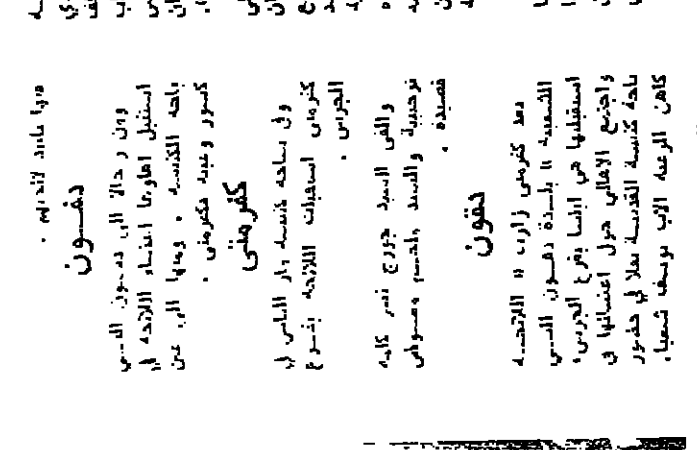 دفون
ومن رحالا الى دفون التي
استقبل اهلوها اعضاء اللائحة في
باحة الكنيسة . ومنها الى عين
كسور وعبيه فكفرمتى .
كفرمتى
وفي ساحة كنيسة مار الياس في
كفرمتى استقبلت اللائحة بقرع
الجراس .
والقى السيد جورج نصر كلمة
ترحيبية والسيد ملحم
قصيدة .
دقون
بعد كفرمتى زارت « اللائحة
الشعبية » بلدة دقون التي
استقبلتها هي ايضا بقرع الجرس،
واجتمع الاهالي حول اعضائها في
باحة كنيسة القديسة تقلا في حضور
كاهن الرعية الاب يوسف شعيا،